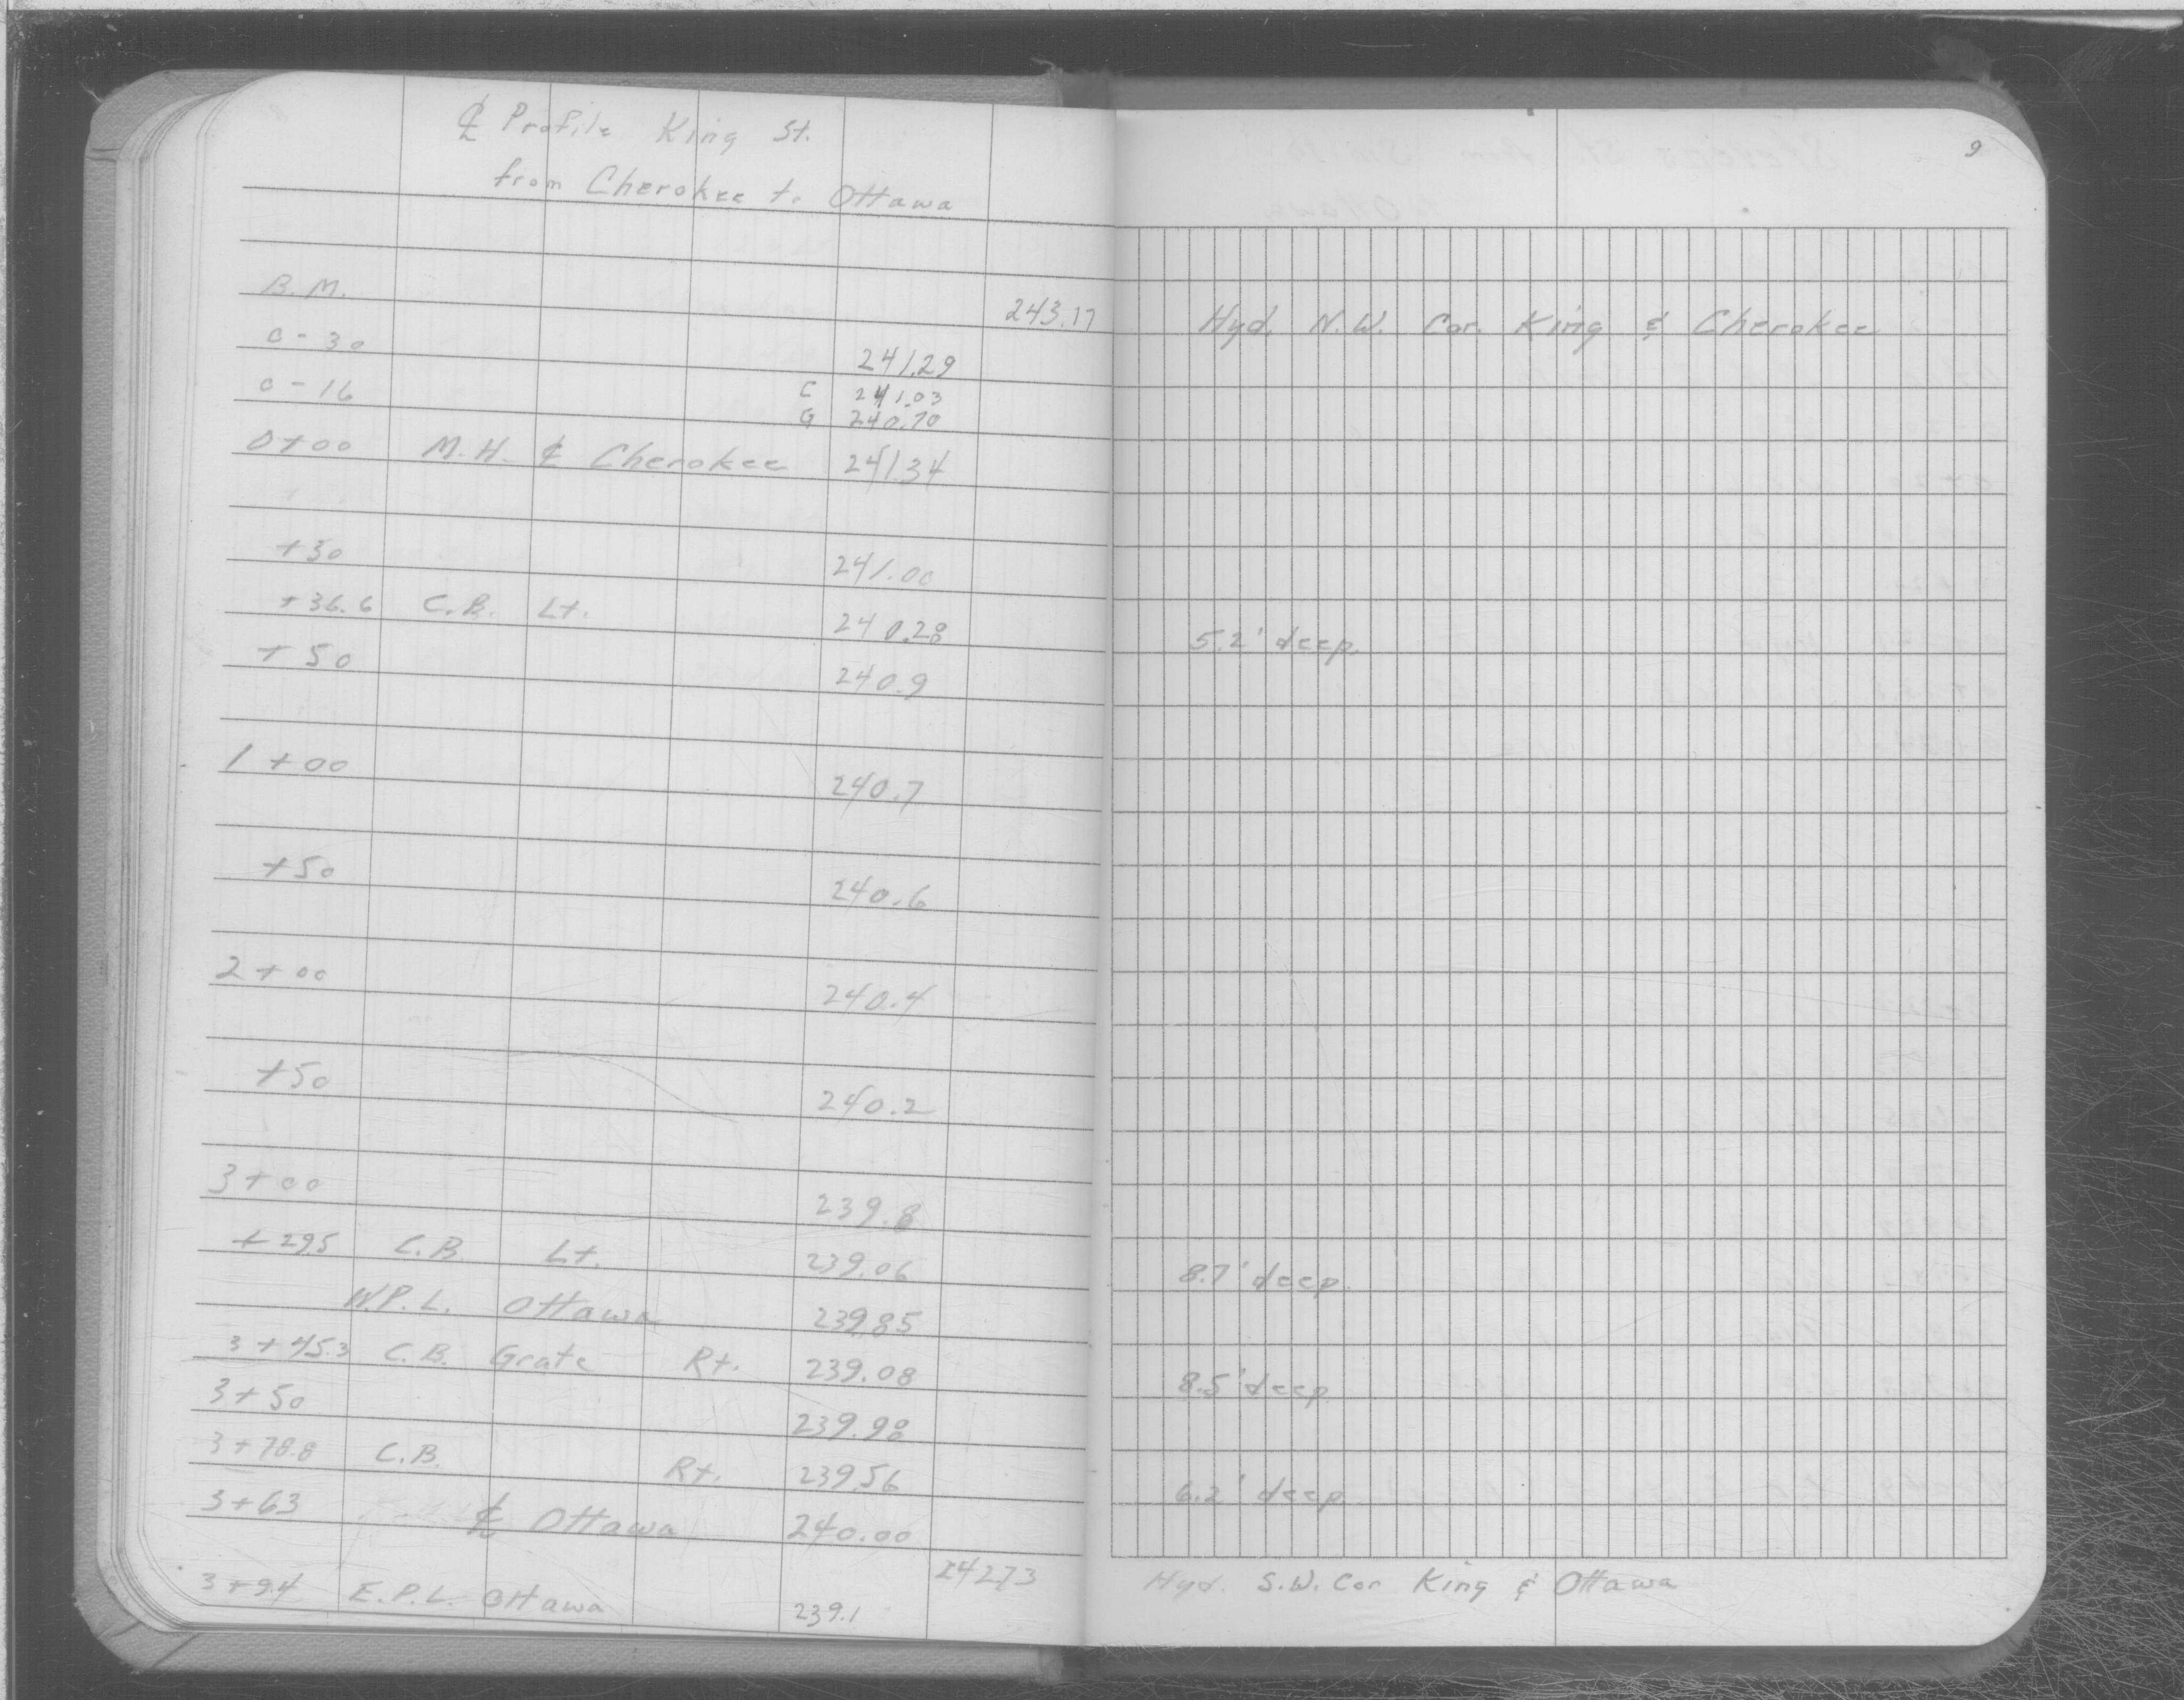 ℄ Profile King St.
from Cherokee to Ottawa
9
B.M. 243.17 Hyd. N.W. Cor. King & Cherokee
0-30 241.29
0-16 C 241.03
G 240.70
0+00 M.H. ℄ Cherokee 241.34
+30 241.00
+36.6 C.B. Lt. 240.28 5.2' deep.
+50 240.9
1+00 240.7
+50 240.6
2+00 240.4
+50 240.2
3+00 239.8
+295 C.B. Lt. 239.06 8.7' deep.
W.P.L. Ottawa 239.85
3+45.3 C.B. Grate Rt. 239.08 8.5' deep.
3+50 239.98
3+78.8 C.B. Rt. 239.56 6.2' deep.
3+63 ℄ Ottawa 240.00
242.73 Hyd. S.W. Cor King & Ottawa
3+94 E.P.L. Ottawa 239.1